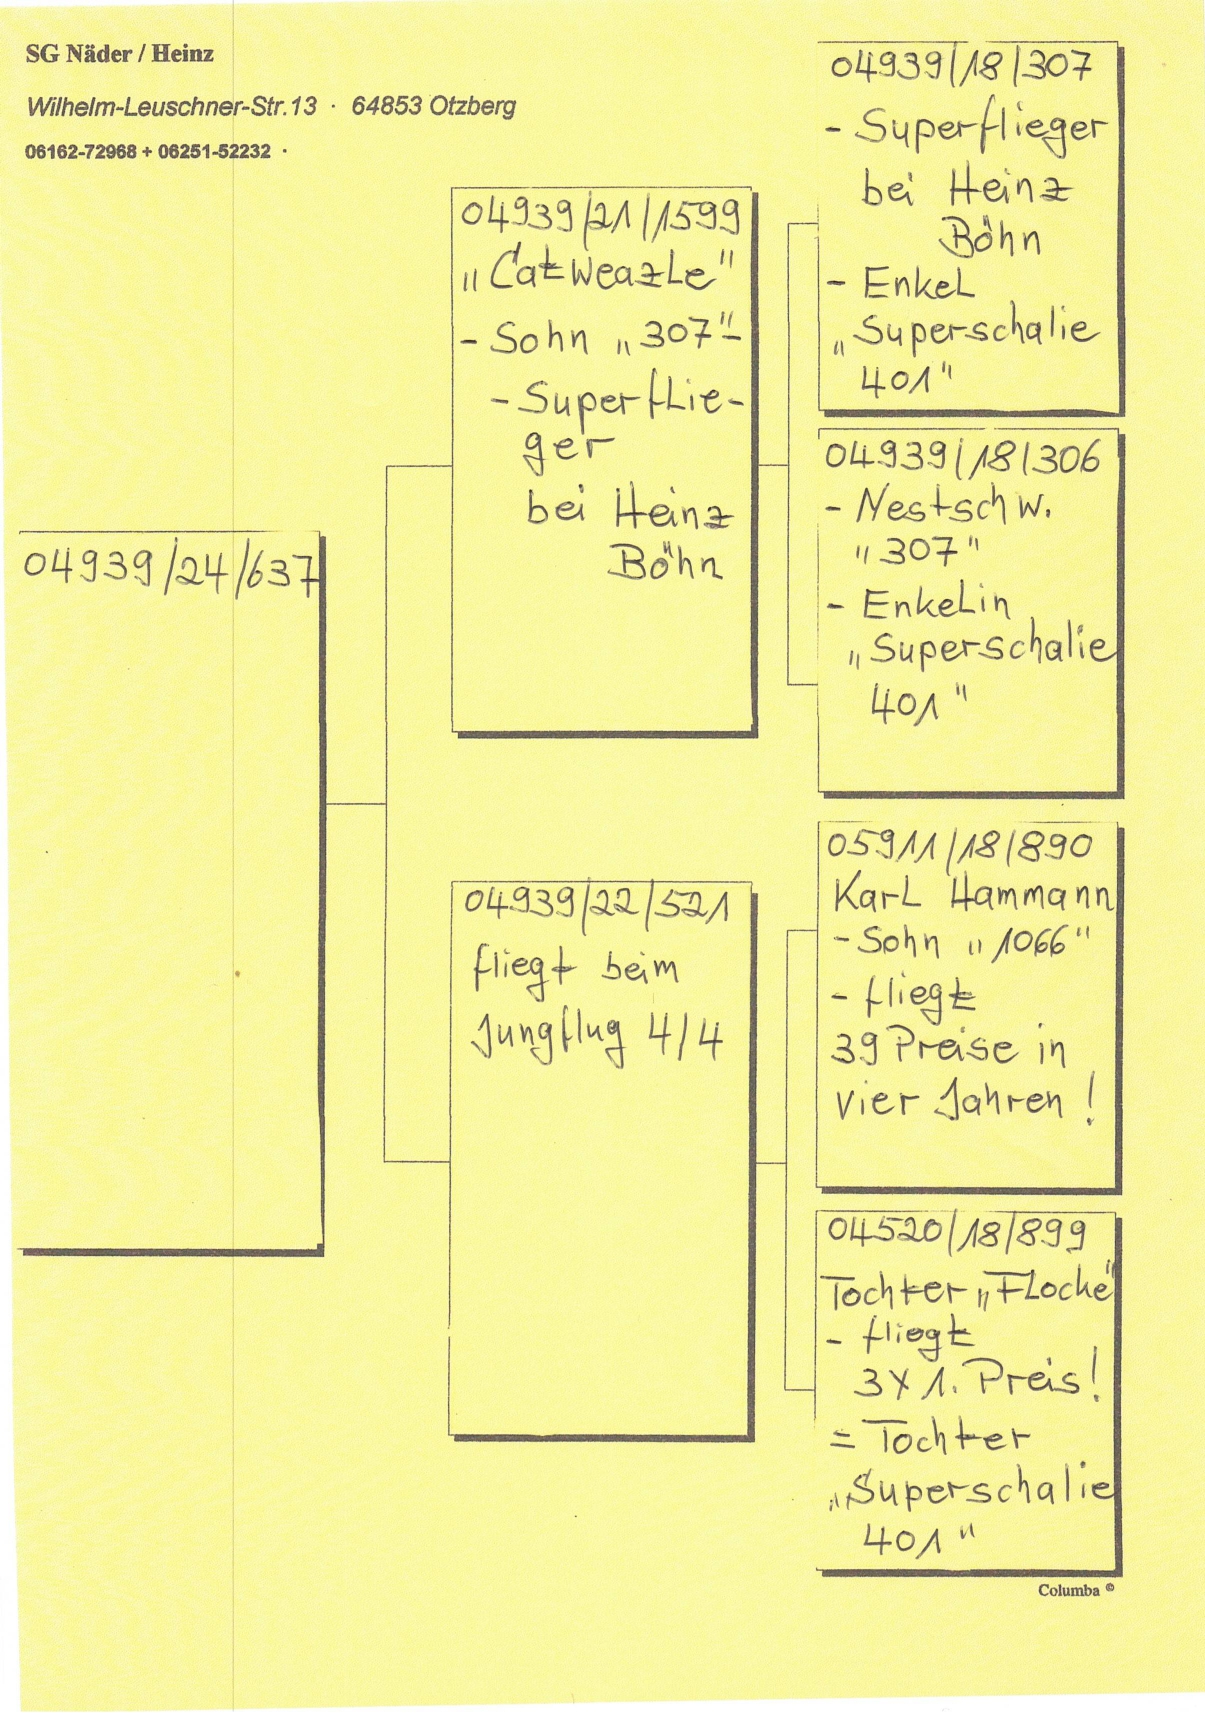 SG Näder / Heinz
Wilhelm-Leuschner-Str.13 · 64853 Otzberg
06162-72968 + 06251-52232 ·
04939/24/637
04939/21/1599
„Catweazle"
- Sohn „307"-
- Superflie-
ger
bei Heinz
Böhn
04939/22/521
fliegt beim
Jungflug 4/4
04939/18/307
- Superflieger
bei Heinz
Böhn
- Enkel
„Superschalie
401"
04939/18/306
- Nestschw.
"307"
- Enkelin
„Superschalie
401"
05911/18/890
Karl Hammann
- Sohn „1066"
- fliegt
39 Preise in
vier Jahren !
04520/18/899
Tochter „Flocke"
- fliegt
3X 1. Preis!
= Tochter
„Superschalie
401"
Columba ©